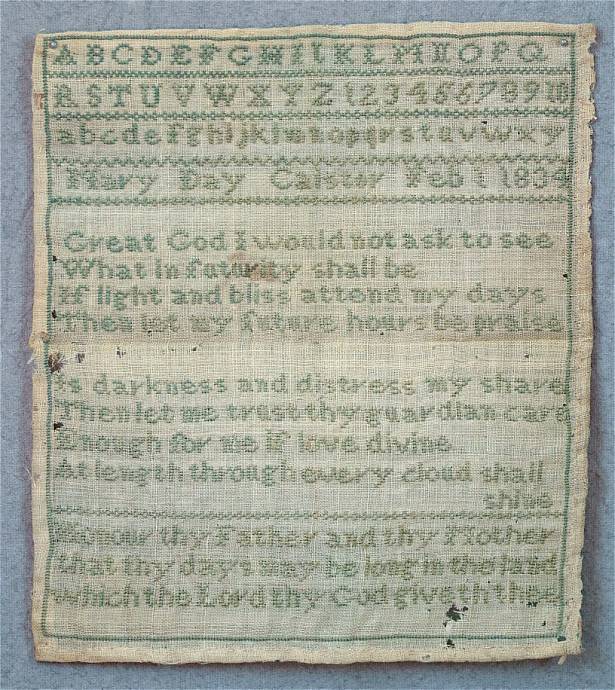 A B C D E F G H I J K L M N O P Q
R S T U V W X Y Z 1 2 3 4 5 6 7 8 9 10
a b c d e f g h i j k l m n o p q r s t u v w x y
Mary Day Caister Feb 1 1834
Great God I would not ask to see
What in futurity shall be
If light and bliss attend my days
Then let my future hours be praise
Is darkness and distress my share
Then let me trust thy guardian care
Enough for me if love divine
At length through every cloud shall
shine
Honour thy Father and thy Mother
that thy days may be long in the land
which the Lord thy God giveth thee